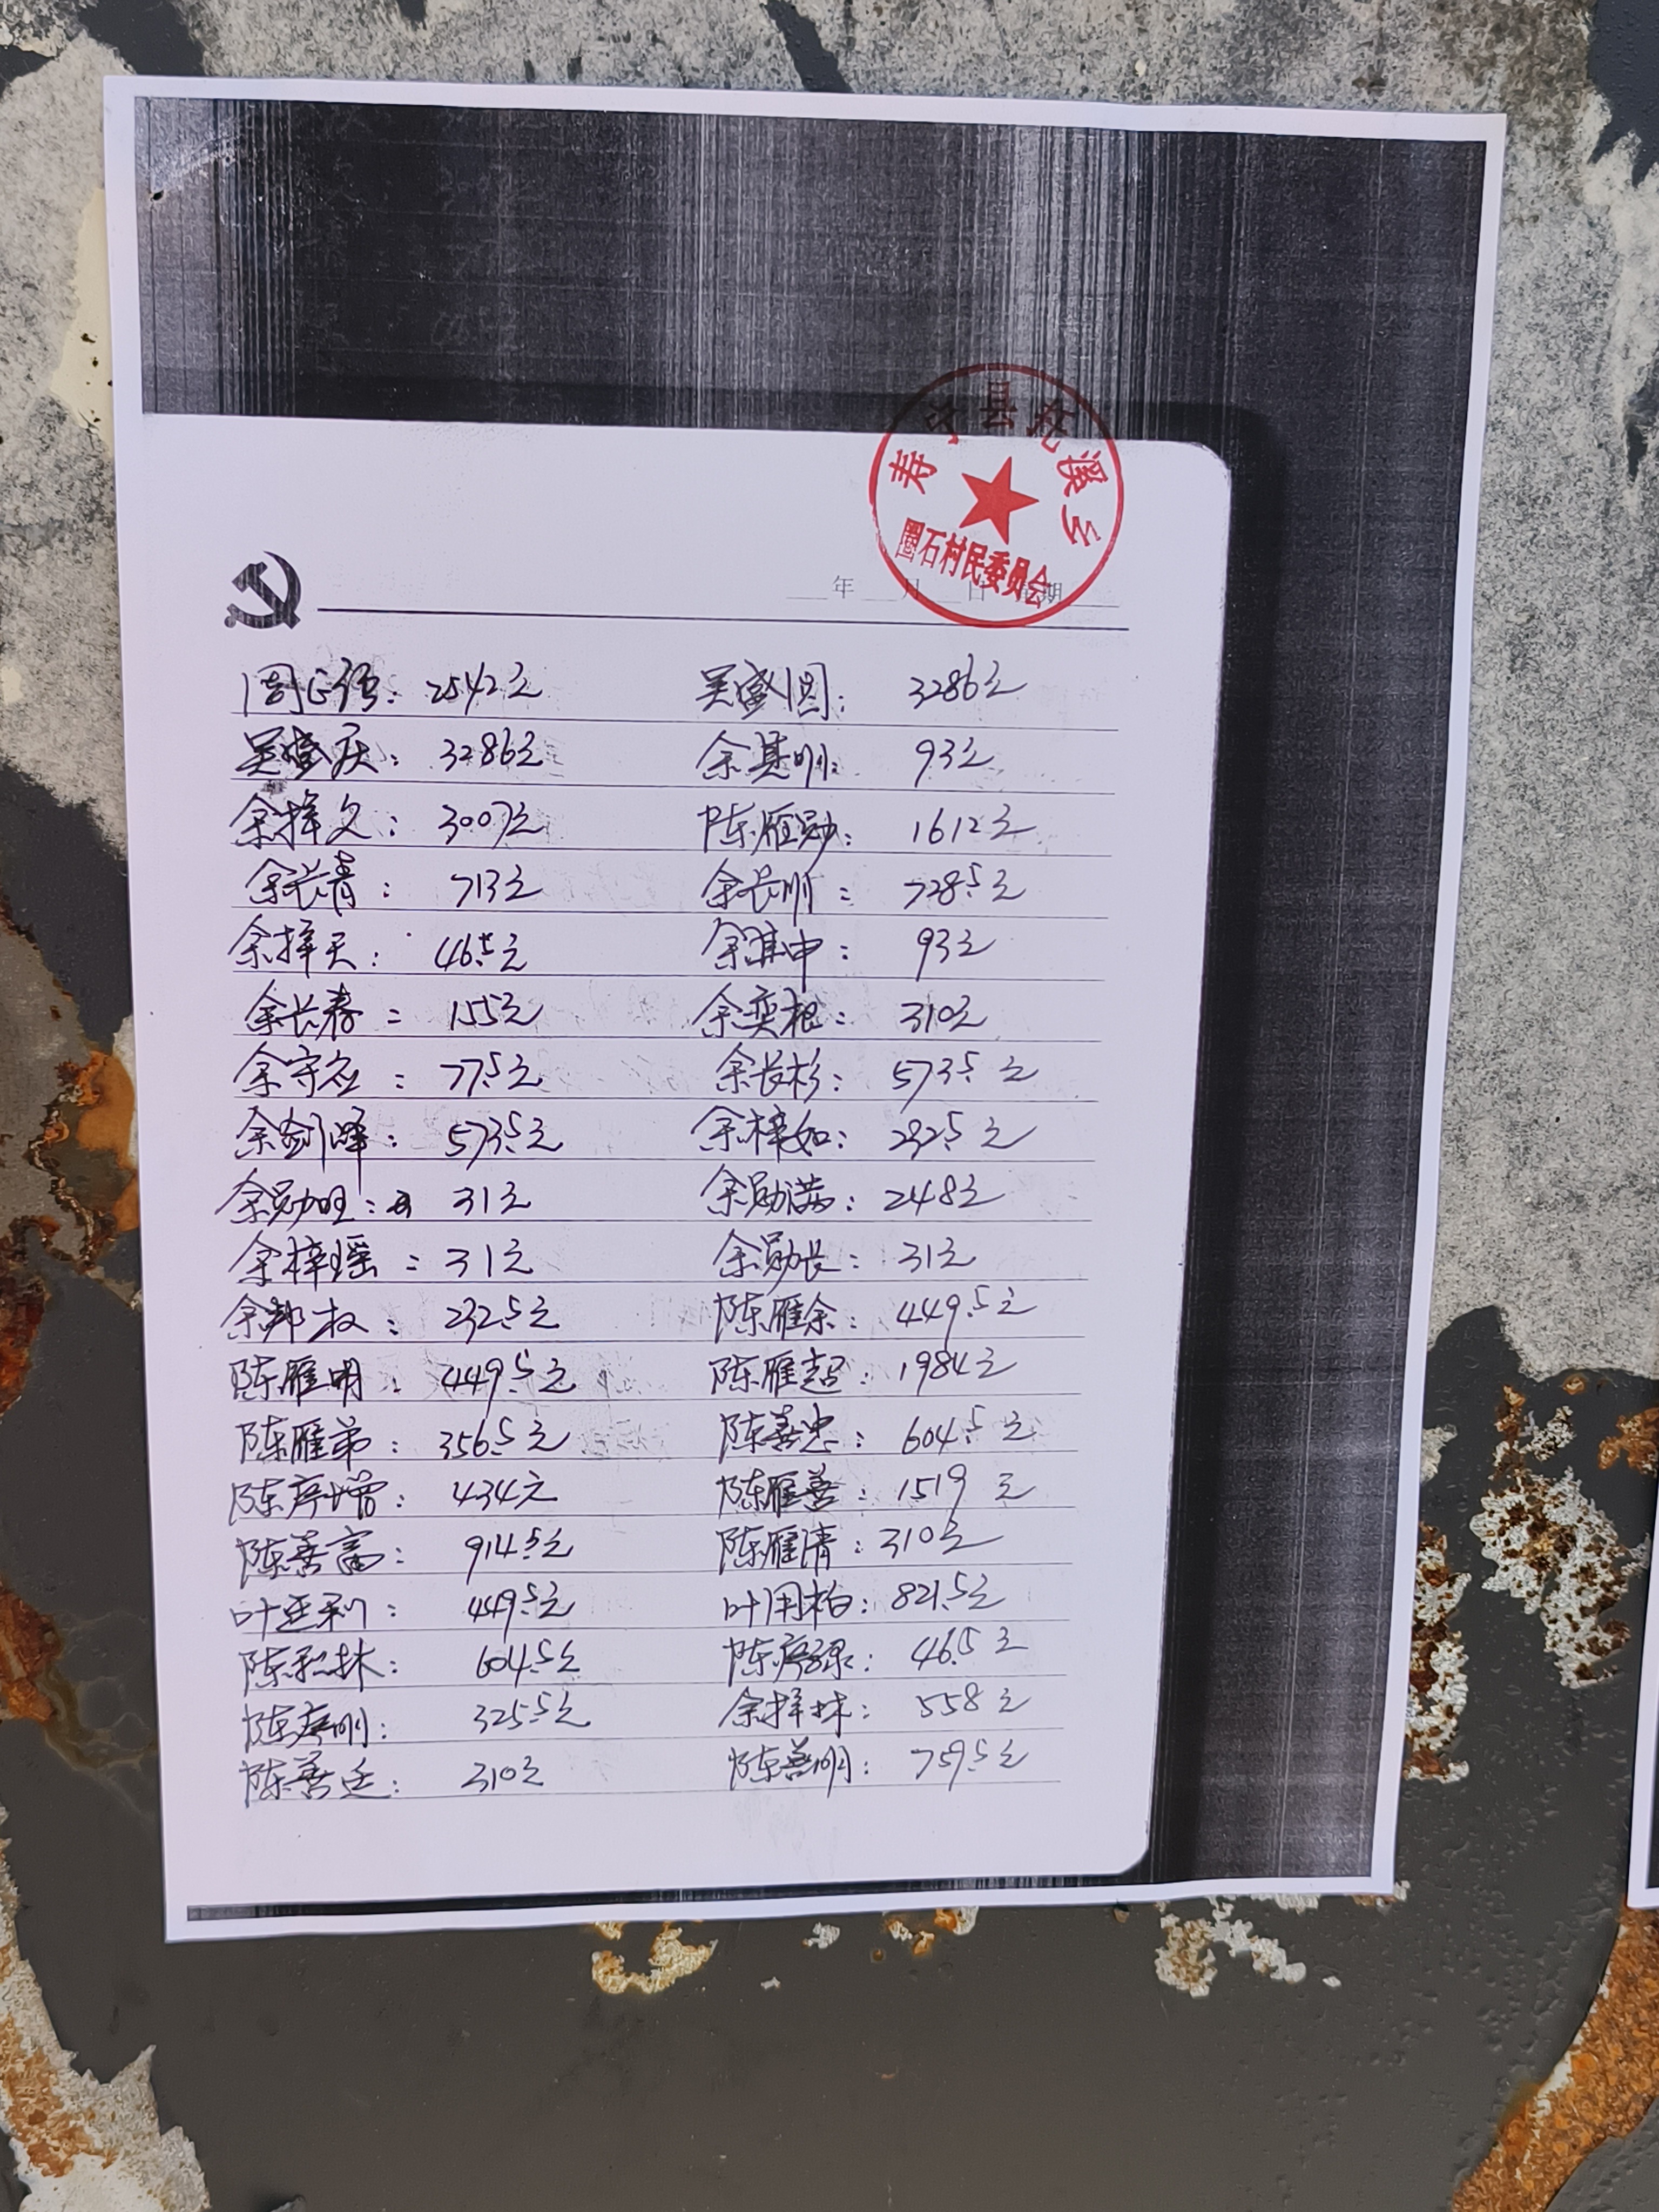 寿宁县坑溪乡
圈石村民委员会
年 月 日 星期
周正强：2542元 吴盛图：3286元
吴盛庆：3286元 余基明：93元
余择久：3007元 陈雁勋：1612元
余长青：713元 余长顺：728.5元
余择天：46.5元 余其中：93元
余长春：155元 余奕根：310元
余守应：77.5元 余长杉：573.5元
余剑峰：573.5元 余梓如：232.5元
余勋旺：31元 余勋满：248元
余梓瑶：31元 余勋长：31元
余邦权：232.5元 陈雁余：449.5元
陈雁明：449.5元 陈雁超：1984元
陈雁弟：356.5元 陈善忠：604.5元
陈序增：434元 陈雁善：1519元
陈善富：914.5元 陈雁清：310元
叶廷利：449.5元 叶用柏：821.5元
陈积林：604.5元 陈序禄：46.5元
陈序明：325.5元 余择林：558元
陈善廷：310元 陈善明：759.5元